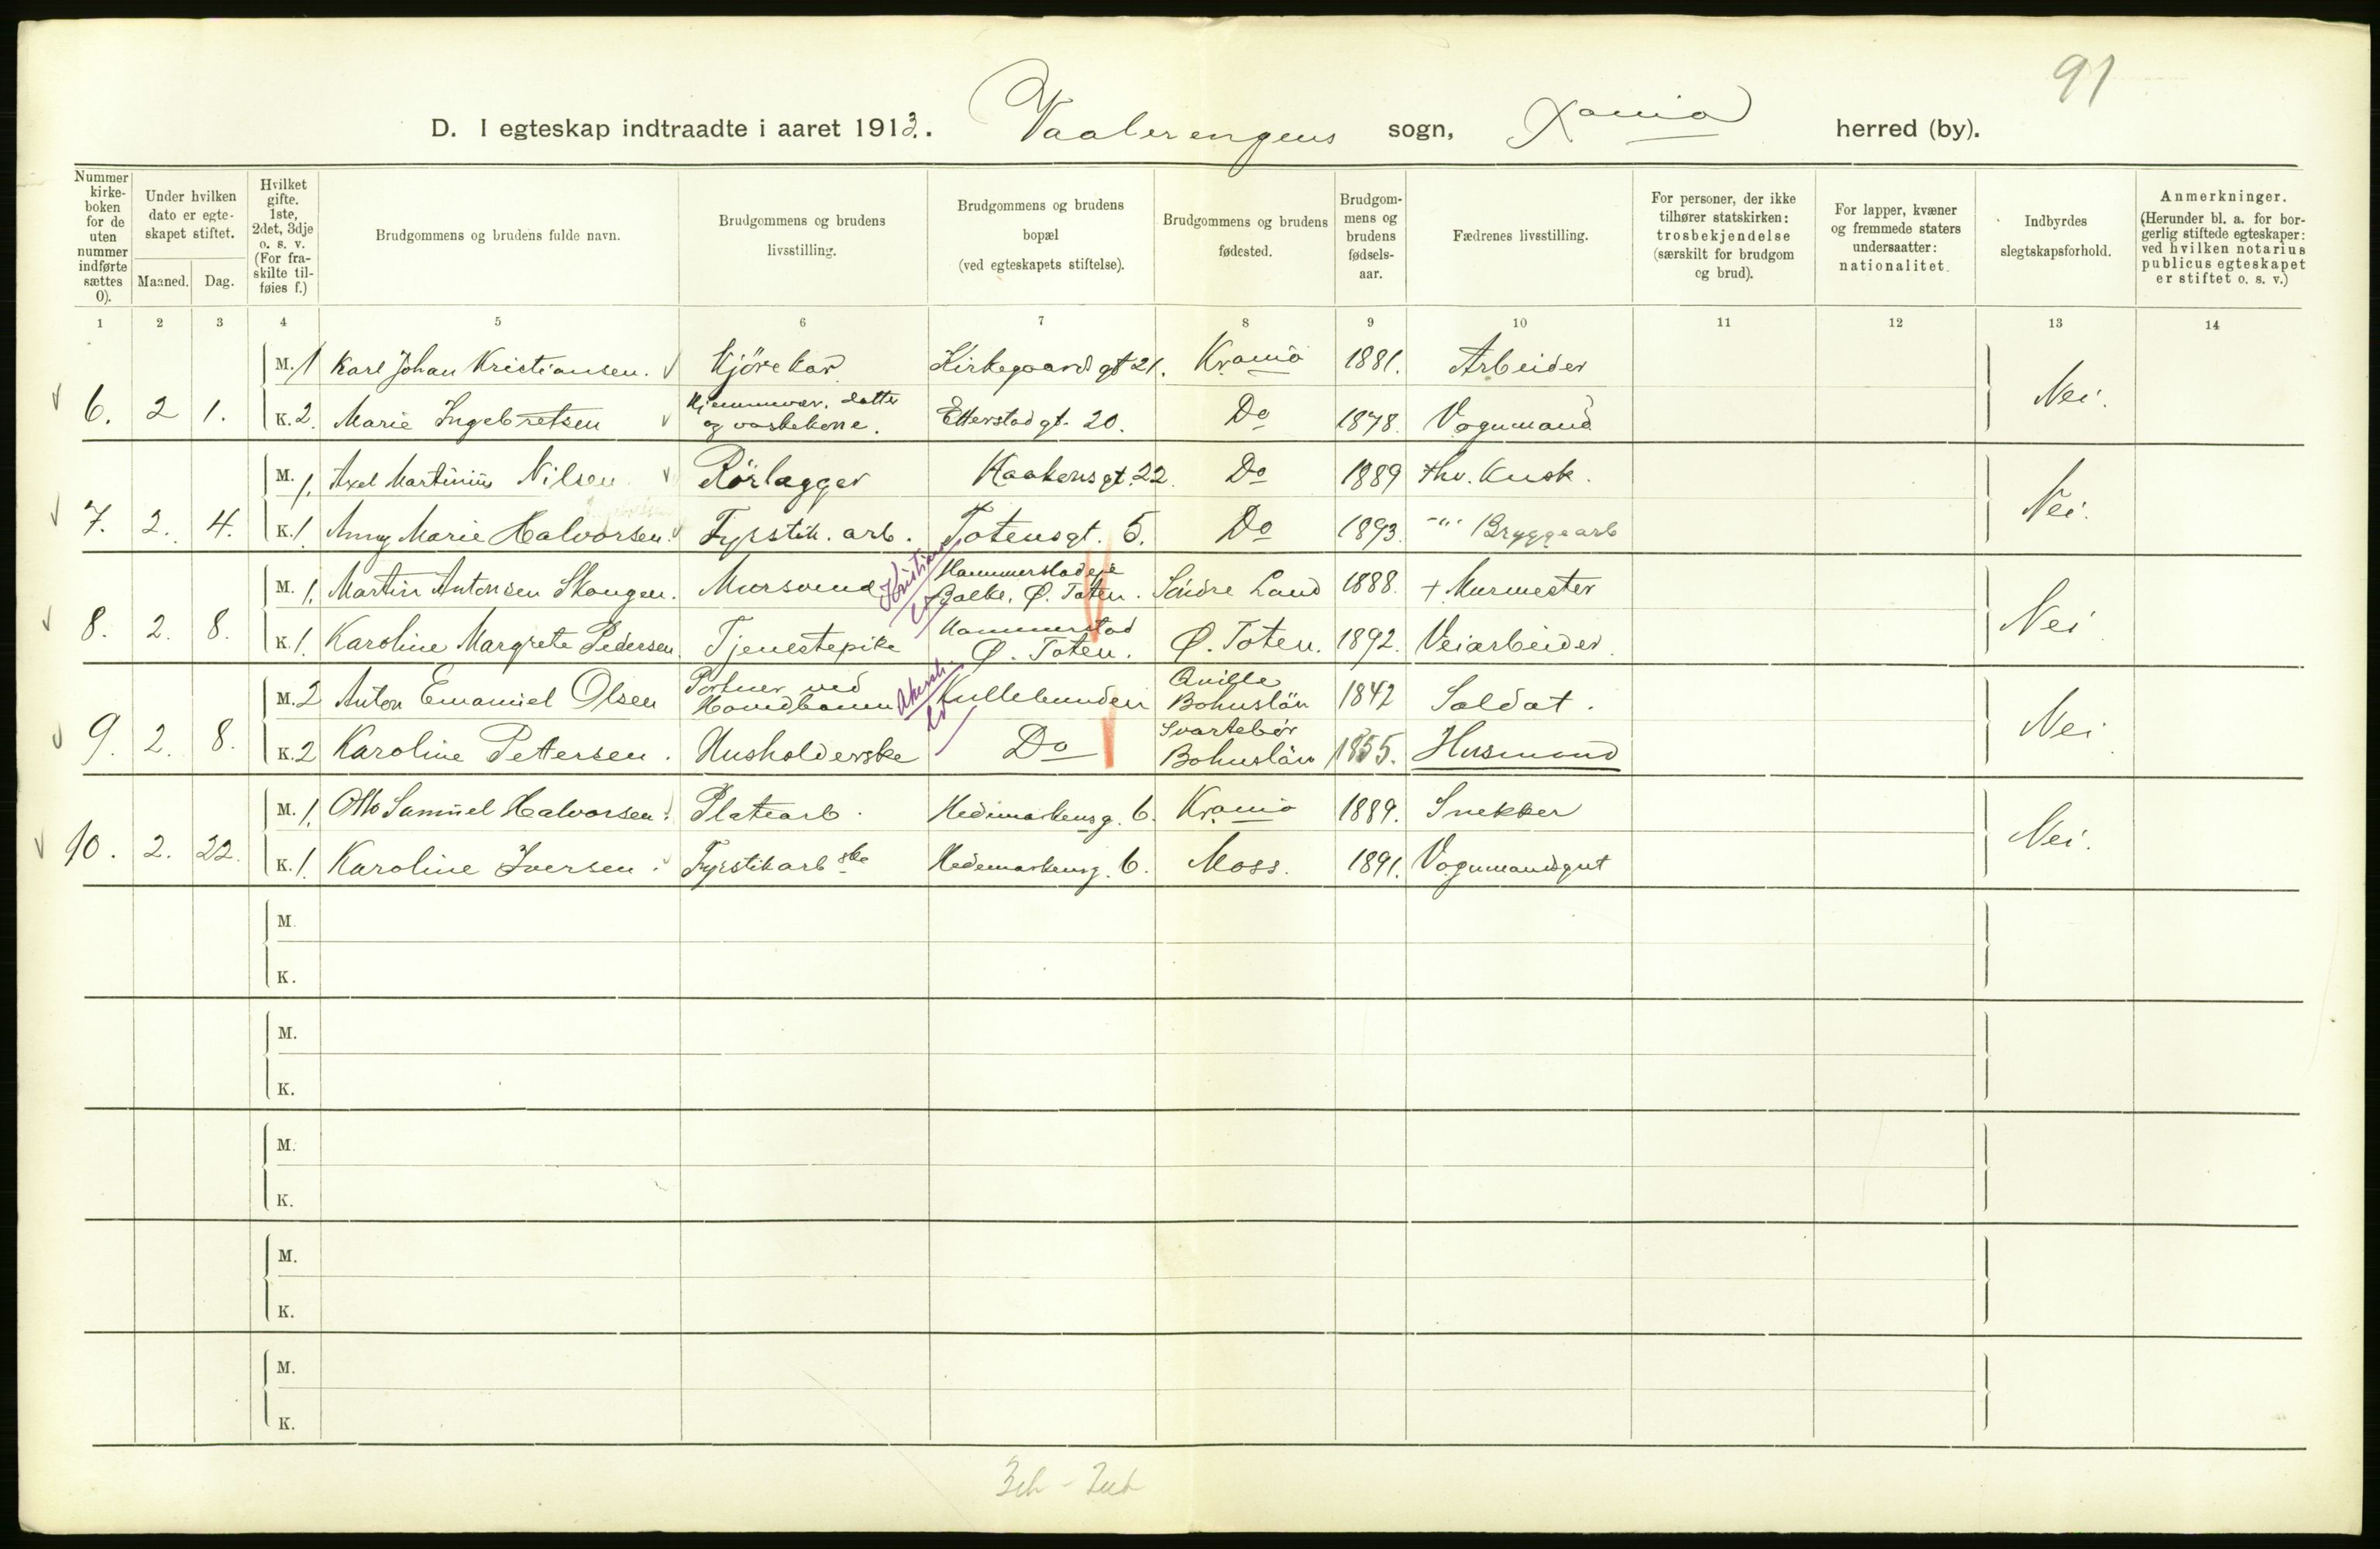 91
D. I egteskap indtraadte i aaret 1913. Vaalerengens sogn, Xania herred (by).
Nummer kirkeboken for de uten nummer indførte sættes 0).
Under hvilken dato er egteskapet stiftet.
Maaned. Dag.
Hvilket gifte. 1ste, 2det, 3dje o. s. v. (For fraskilte tilføies f.)
Brudgommens og brudens fulde navn.
Brudgommens og brudens livsstilling.
Brudgommens og brudens bopæl (ved egteskapets stiftelse).
Brudgommens og brudens fødested.
Brudgommens og brudens fødselsaar.
Fædrenes livsstilling.
For personer, der ikke tilhører statskirken: trosbekjendelse (særskilt for brudgom og brud).
For lapper, kvæner og fremmede staters undersaatter: nationalitet.
Indbyrdes slegtskapsforhold.
Anmerkninger. (Herunder bl. a. for borgerlig stiftede egteskaper: ved hvilken notarius publicus egteskapet er stiftet o. s. v.)
1 2 3 4 5 6 7 8 9 10 11 12 13 14
M. 1 Karl Johan Kristiansen. Kjörekar Kirkegaardsgt 21. Krania 1881. Arbeider
6. 2 1. K. 2. Marie Ingebretsen Hjemmevær. datter og vaskekone. Etterstadgt. 20. Do 1878. Vognmand Nei.
M. 1. Axel Martinius Nilsen Rörlægger Haakonsgt. 22 Do 1889 fhv. Kusk.
7. 2. 4. K. 1 Anny Marie Halvorsen. Fyrstik. arb. Totensgt. 5. Do 1893. -"- Bryggearb Nei.
M. 1. Martin Antonsen Skaugen. Mursvend Hammerstadeie Balke, Ø. Toten. Söndre Land 1888. + Murmester
8. 2. 8. K. 1. Karoline Margrete Pedersen. Tjenestepike Hammerstad Ø. Toten. Ø. Toten. 1892. Veiarbeider. Nei
M. 2 Anton Emanuel Olsen Portner ved Kullebunden Qville Bohuslän 1842 Soldat.
9. 2. 8. K. 2 Karoline Pettersen. Husholderske Do Svartebör Bohuslän 1855. Husmand Nei
M. 1. Otto Samuel Halvorsen. Platearb. Hedemarkensg. 6. Krania 1889. Snekker
10. 2. 22. K. 1. Karoline Iversen. Fyrstikarb ske Hedemarkensg. 6. Moss. 1891. Vognmandsgut Nei.
M.
K.
M.
K.
M.
K.
M.
K.
M.
K.